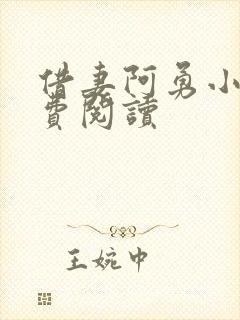 借妻阿勇小
費閱讀
王婉中